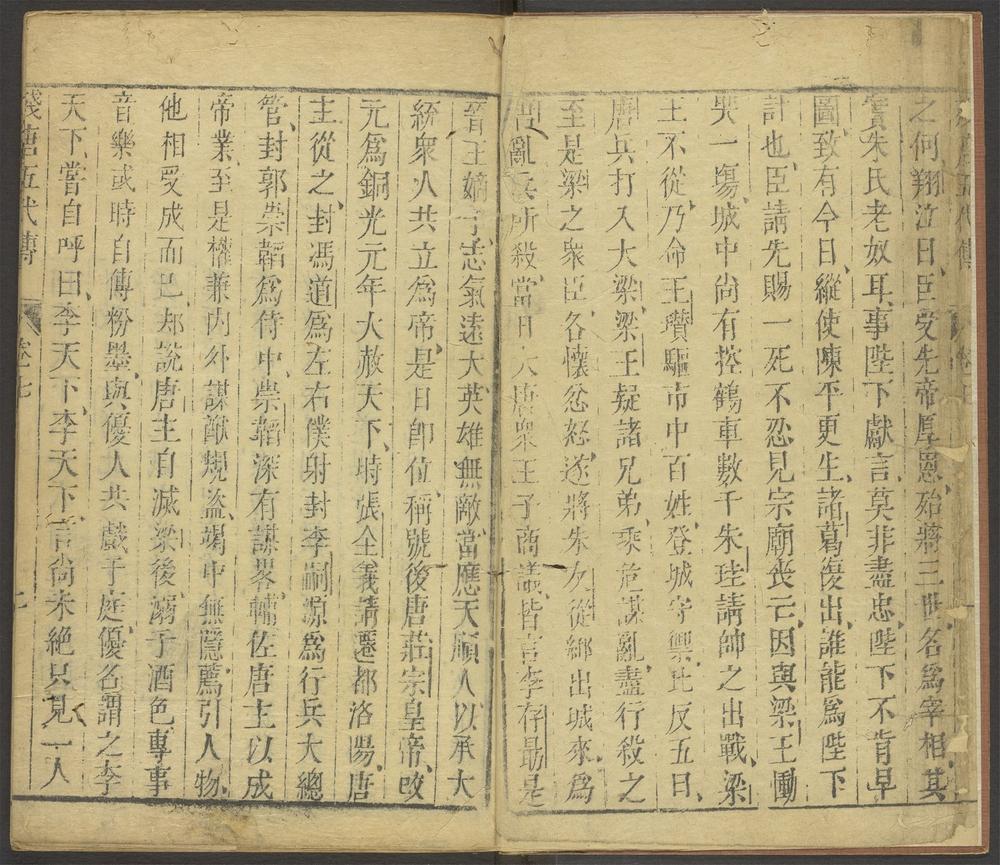 之何翔泣曰臣受先帝厚恩殆將三世名爲宰相其
實朱氏老奴耳事陛下獻言莫非盡忠陛下不肯早
圖致有今日縱使陳平更生諸葛復出誰能爲陛下
計也臣請先賜一死不忍見宗廟喪亡因與梁王慟
哭一塲城中尚有控鶴軍數千朱珪請帥之出戰梁
王不從乃命王瓚驅市中百姓登城守禦比反五日
唐兵打入大梁梁王疑諸兄弟乘危謀亂盡行殺之
至是梁之衆臣各懷忿怒遂將朱友從綁出城來爲
亂兵所殺當日大唐衆王子商議皆言李存朂是
晉王嫡子志氣遠大英雄無敵當應天順人以承大
統衆人共立爲帝是日卽位稱號後唐莊宗皇帝改
元爲銅光元年大赦天下時張全義請遷都洛陽唐
主從之封馮道爲左右僕射封李嗣源爲行兵大總
管封郭崇韜爲侍中崇韜深有謀畧輔佐唐主以成
帝業至是權兼内外謀猷規益竭中無隱薦引人物
他相受成而已却說唐主自滅梁後溺于酒色專事
音樂或時自傅粉墨與優人共戲于庭優名謂之李
天下嘗自呼曰李天下李天下言尚未絶只見一人
殘唐五代傳 卷之七